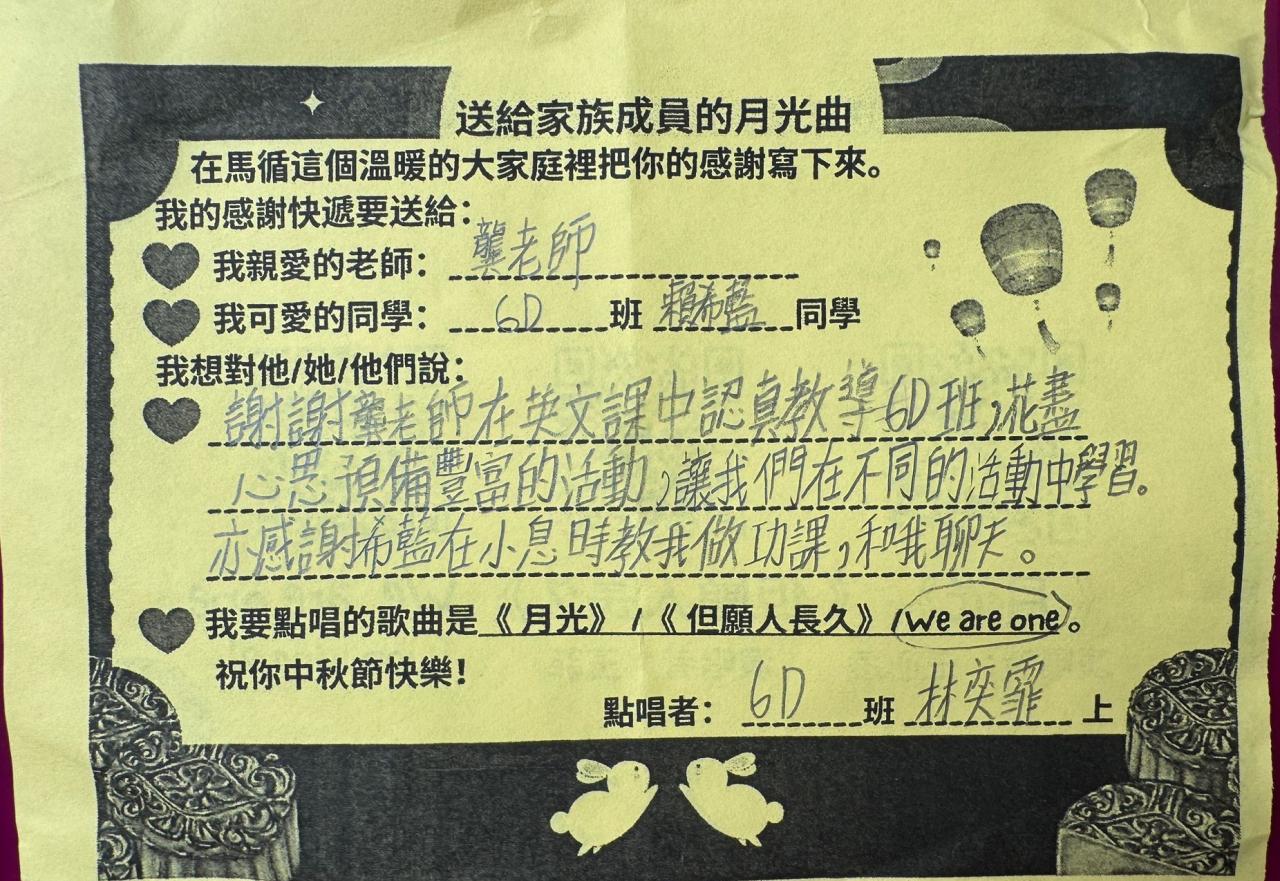 送給家族成員的月光曲
在馬循這個溫暖的大家庭裡把你的感謝寫下來。
我的感謝快遞要送給：
我親愛的老師：龔老師
我可愛的同學：6D班 賴希藍 同學
我想對他/她/他們說：
謝謝龔老師在英文課中認真教導6D班，花盡
心思預備豐富的活動，讓我們在不同的活動中學習。
亦感謝希藍在小息時教我做功課，和我聊天。
我要點唱的歌曲是《月光》/《但願人長久》/We are one。
祝你中秋節快樂！
點唱者：6D班 林奕霏 上